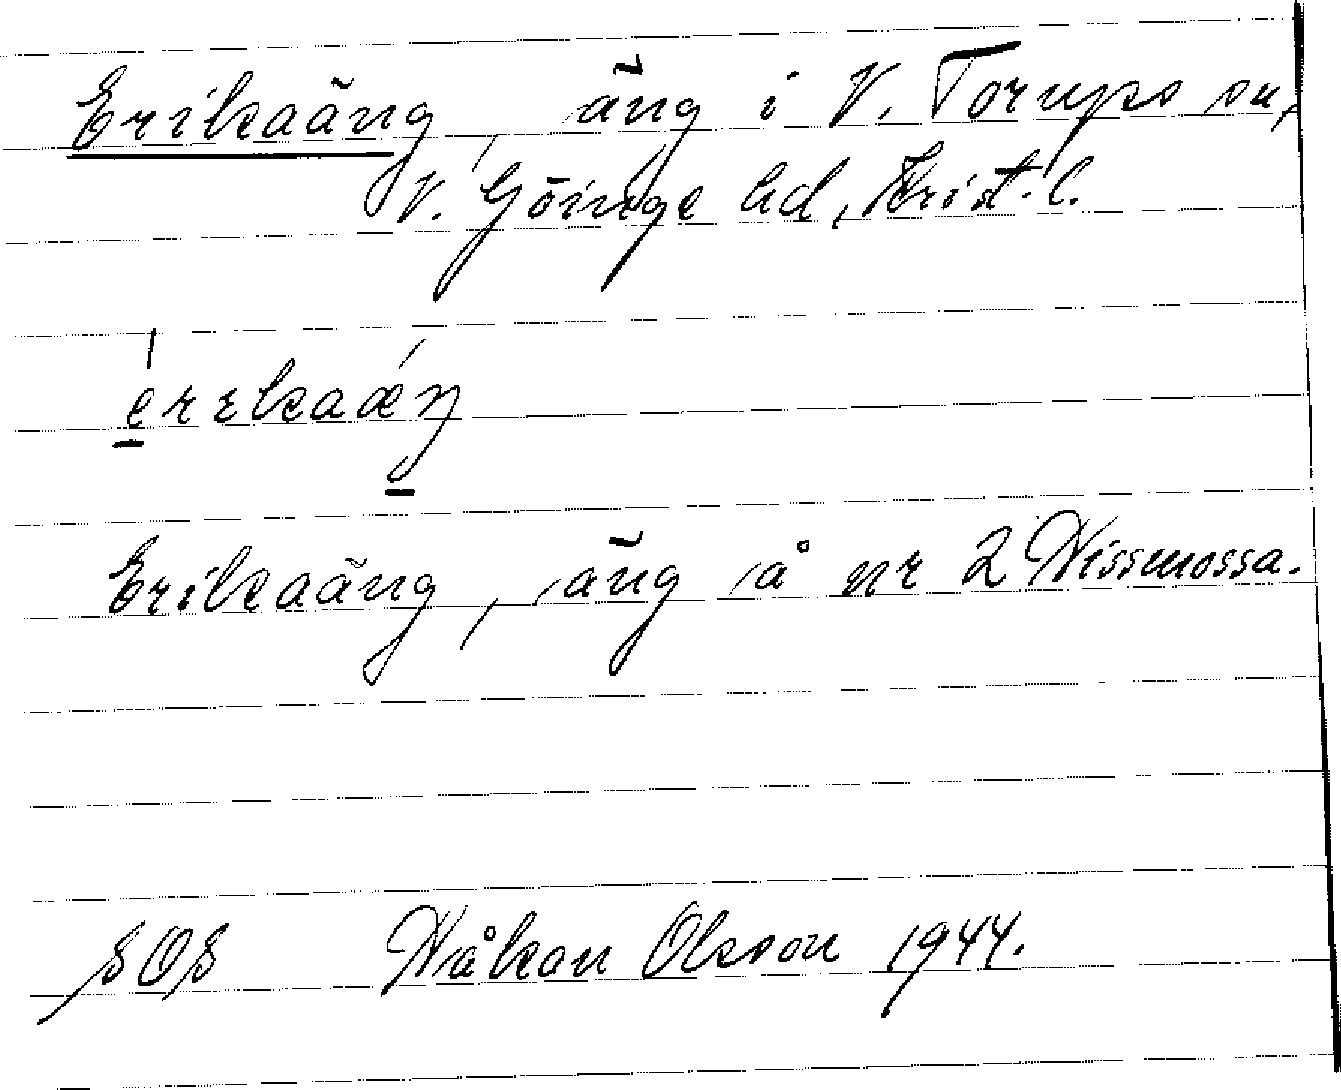 Erikaäng, äng i V. Torups sn,
V. Göinge hd, Krist. l.
Erikaäng, äng å nr 2 Hissmossa.
SOS Håkan Olsson 1944.